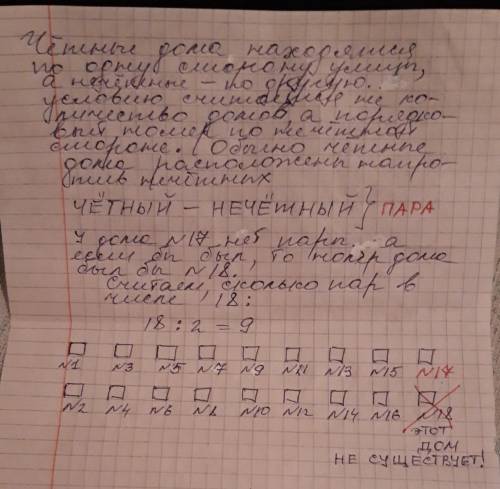 Чётные дома находятся
по одну сторону улицы,
а нечётные – по другую.
условию считается не ко-
личество домов, а порядко-
вый номер по нечётной
стороне. Обычно чётные
дома расположены напро-
тив нечётных
ЧЁТНЫЙ – НЕЧЁТНЫЙ} ПАРА
У дома №17 нет пары, а
если бы был, то номер дома
был бы №18.
Считаем, сколько пар в
числе 18:
18 : 2 = 9
№1 №3 №5 №7 №9 №11 №13 №15 №17
№2 №4 №6 №8 №10 №12 №14 №16 №18
ЭТОТ
ДОМ
НЕ СУЩЕСТВУЕТ!